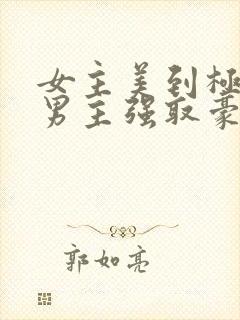 女主美到极
男主强取豪
郭如亮